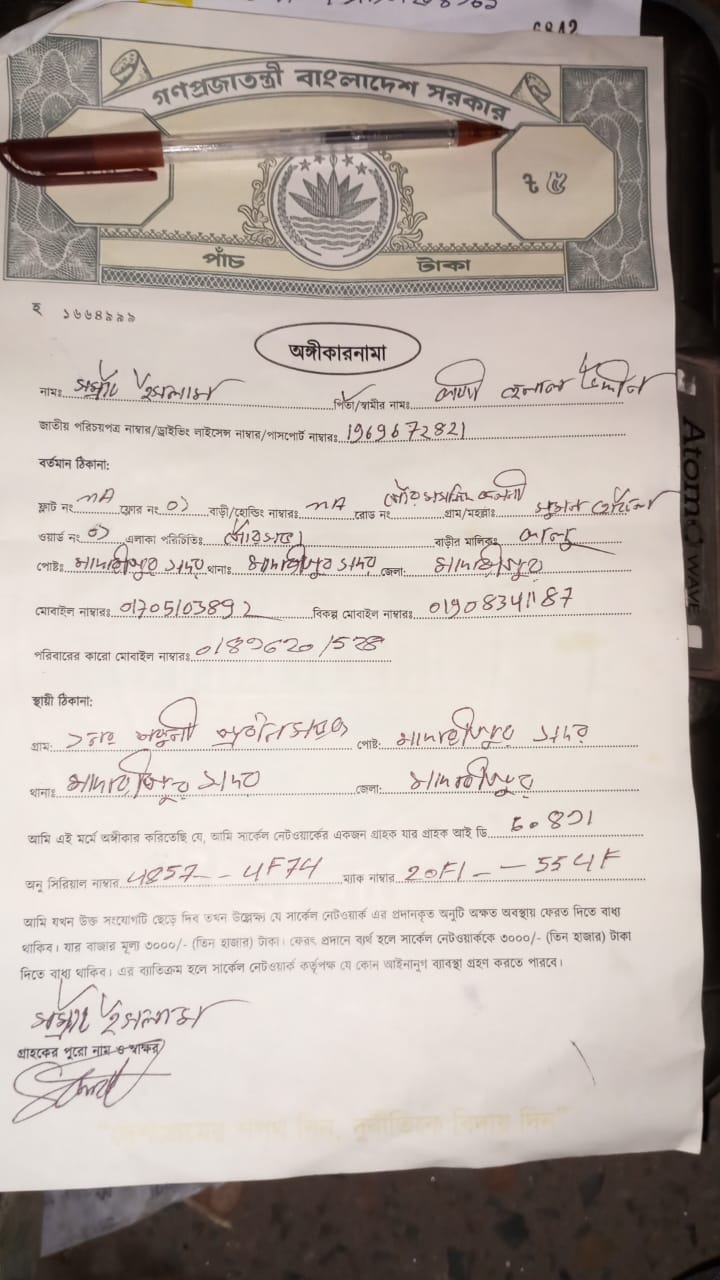 গণপ্রজাতন্ত্রী বাংলাদেশ সরকার
ট ৫
পাঁচ টাকা
হ ১৬৬৪৯৯৯
অঙ্গীকারনামা
নামঃ সম্রাট ইসলাম পিতা/স্বামীর নামঃ কাজী হেলাল উদ্দীন
জাতীয় পরিচয়পত্র নাম্বার/ড্রাইভিং লাইসেন্স নাম্বার/পাসপোর্ট নাম্বারঃ 1969672821
বর্তমান ঠিকানা:
ফ্লাট নং NA ফ্লোর নং ০১ বাড়ী/হোল্ডিং নাম্বারঃ NA রোড নং গ্রাম/মহল্লাঃ সুমন হোটেল
ওয়ার্ড নং এলাকা পরিচিতিঃ পৌরসভা বাড়ীর মালিকঃ
পোষ্টঃ মাদারীপুর সদর থানাঃ মাদারীপুর সদর জেলা: মাদারীপুর
মোবাইল নাম্বারঃ 01705103892 বিকল্প মোবাইল নাম্বারঃ 01908341187
পরিবারের কারো মোবাইল নাম্বারঃ
স্থায়ী ঠিকানা:
গ্রাম: পোষ্ট: মাদারীপুর সদর
থানাঃ মাদারীপুর সদর জেলা: মাদারীপুর
আমি এই মর্মে অঙ্গীকার করিতেছি যে, আমি সার্কেল নেটওয়ার্কের একজন গ্রাহক যার গ্রাহক আই ডি
অনু সিরিয়াল নাম্বার 4857--4F74 ম্যাক নাম্বার 20F1--554F
আমি যখন উক্ত সংযোগটি ছেড়ে দিব তখন উল্লেক্ষ্য যে সার্কেল নেটওয়ার্ক এর প্রদানকৃত অনুটি অক্ষত অবস্থায় ফেরত দিতে বাধ্য
থাকিব। যার বাজার মূল্য ৩০০০/- (তিন হাজার) টাকা। ফেরৎ প্রদানে ব্যর্থ হলে সার্কেল নেটওয়ার্ককে ৩০০০/- (তিন হাজার) টাকা
দিতে বাধ্য থাকিব। এর ব্যতিক্রম হলে সার্কেল নেটওয়ার্ক কর্তৃপক্ষ যে কোন আইনানুগ ব্যাবস্থা গ্রহণ করতে পারবে।
সম্রাট ইসলাম
গ্রাহকের পুরো নাম ও স্বাক্ষর
Atom
WAVE